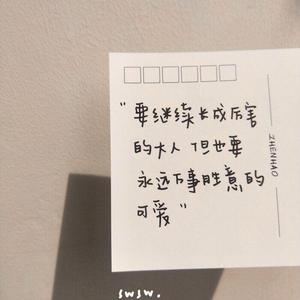 "要继续长成厉害
的大人 但也要
永远万事胜意的
可爱"
ZHENHAO
swsw.